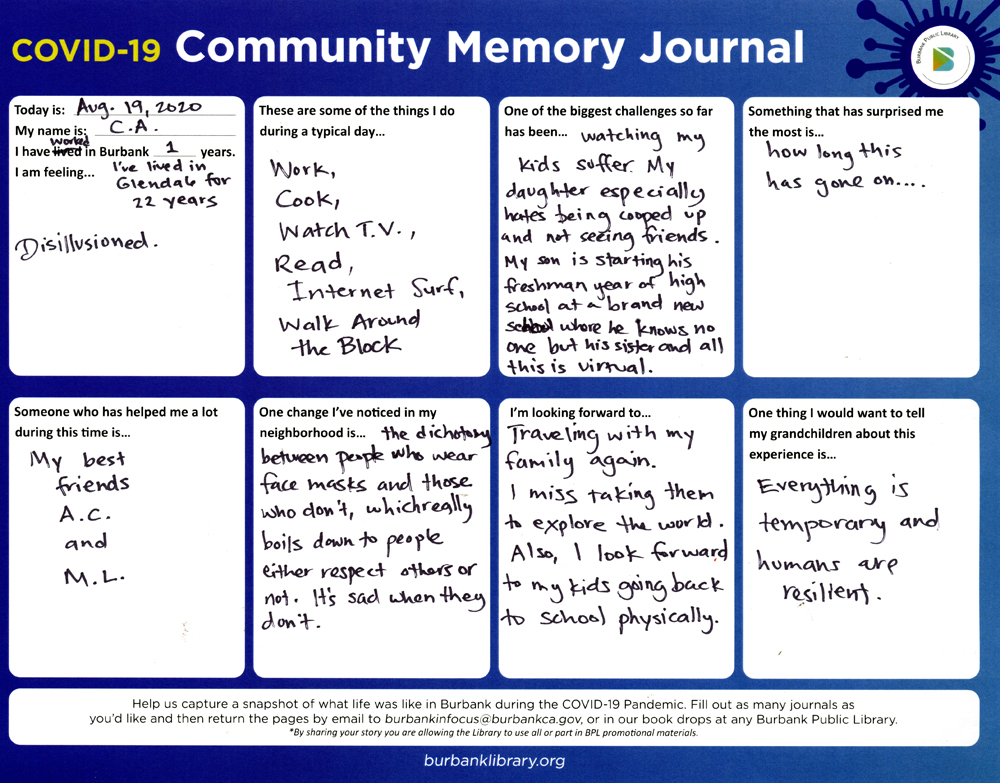 COVID-19 Community Memory Journal
BURBANK PUBLIC LIBRARY
B
Today is: Aug. 19, 2020
My name is: C.A.
worked
I have lived in Burbank 1 years.
I am feeling... I've lived in
Glendale for
22 years
Disillusioned.
These are some of the things I do
during a typical day...
Work,
Cook,
Watch T.V.,
Read,
Internet Surf,
Walk Around
the Block
One of the biggest challenges so far
has been... watching my
kids suffer. My
daughter especially
hates being cooped up
and not seeing friends.
My son is starting his
freshman year of high
school at a brand new
school where he knows no
one but his sister and all
this is virtual.
Something that has surprised me
the most is...
how long this
has gone on....
Someone who has helped me a lot
during this time is...
My best
friends
A.C.
and
M.L.
One change I've noticed in my
neighborhood is... the dichotomy
between people who wear
face masks and those
who don't, which really
boils down to people
either respect others or
not. It's sad when they
don't.
I'm looking forward to...
Traveling with my
family again.
I miss taking them
to explore the world.
Also, I look forward
to my kids going back
to school physically.
One thing I would want to tell
my grandchildren about this
experience is...
Everything is
temporary and
humans are
resilient.
Help us capture a snapshot of what life was like in Burbank during the COVID-19 Pandemic. Fill out as many journals as
you'd like and then return the pages by email to burbankinfocus@burbankca.gov, or in our book drops at any Burbank Public Library.
*By sharing your story you are allowing the Library to use all or part in BPL promotional materials.
burbanklibrary.org